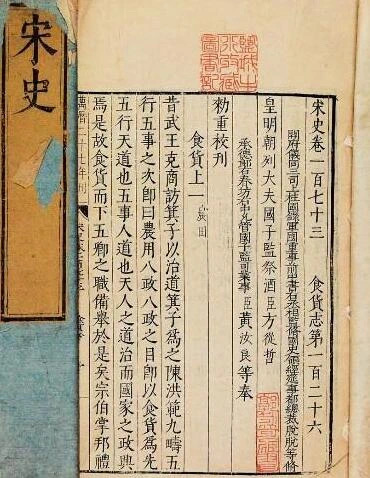 宋史卷一百七十三　食貨志第一百二十六
開府儀同三司上柱國錄軍國重事前中書右丞相監修國史領經筵事都總裁脫脫等修
皇明朝列大夫國子監祭酒臣方從哲
承德郎右春坊右中允管國子監司業事臣黃汝良等奉
勑重校刊
食貨上一　農田
昔武王克商訪箕子以治道箕子爲之陳洪範九疇五
行五事之次卽曰農用八政八政之目卽以食貨爲先
五行天道也五事人道也天人之道治而國家之政興
焉是故食貨而下五卿之職備舉於是矣宗伯掌邦禮
萬曆二十七年刊
宋史